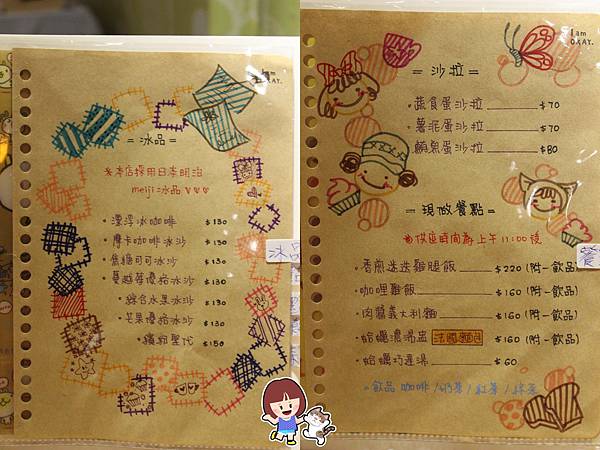 I am
OKAY.
= 冰品 =
※本店採用日本明治
meiji冰品 ♥♥♥
• 漂浮冰咖啡 $130
• 摩卡咖啡冰沙 $130
• 焦糖可可冰沙 $130
• 蔓越莓優格冰沙 $130
• 綜合水果冰沙 $130
• 芒果優格冰沙 $130
• 繽粉聖代 $150
冰品
I am
OKAY.
= 沙拉 =
• 蔬食蛋沙拉 $70
• 薯泥蛋沙拉 $70
• 鮪魚蛋沙拉 $80
= 現做餐點 =
供應時間為上午11:00後
• 香煎迷迭雞腿飯 $220 (附一飲品)
• 咖哩雞飯 $160 (附一飲品)
• 肉醬義大利麵 $160 (附一飲品)
• 蛤蠣濃湯盅 法國麵包 $160 (附一飲品)
• 蛤蠣巧達湯 $60
飲品 咖啡 / 奶茶 / 紅茶 / 綠茶